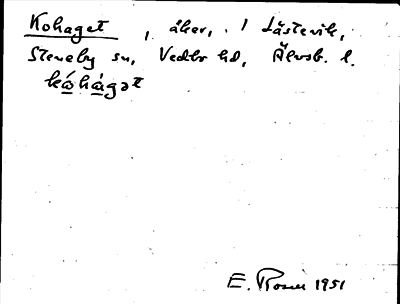 Kohaget, åker, i Låstevik,
Steneby sn, Vedbo hd, Älvsb. l.
kóhágət
E. Rosén 1951